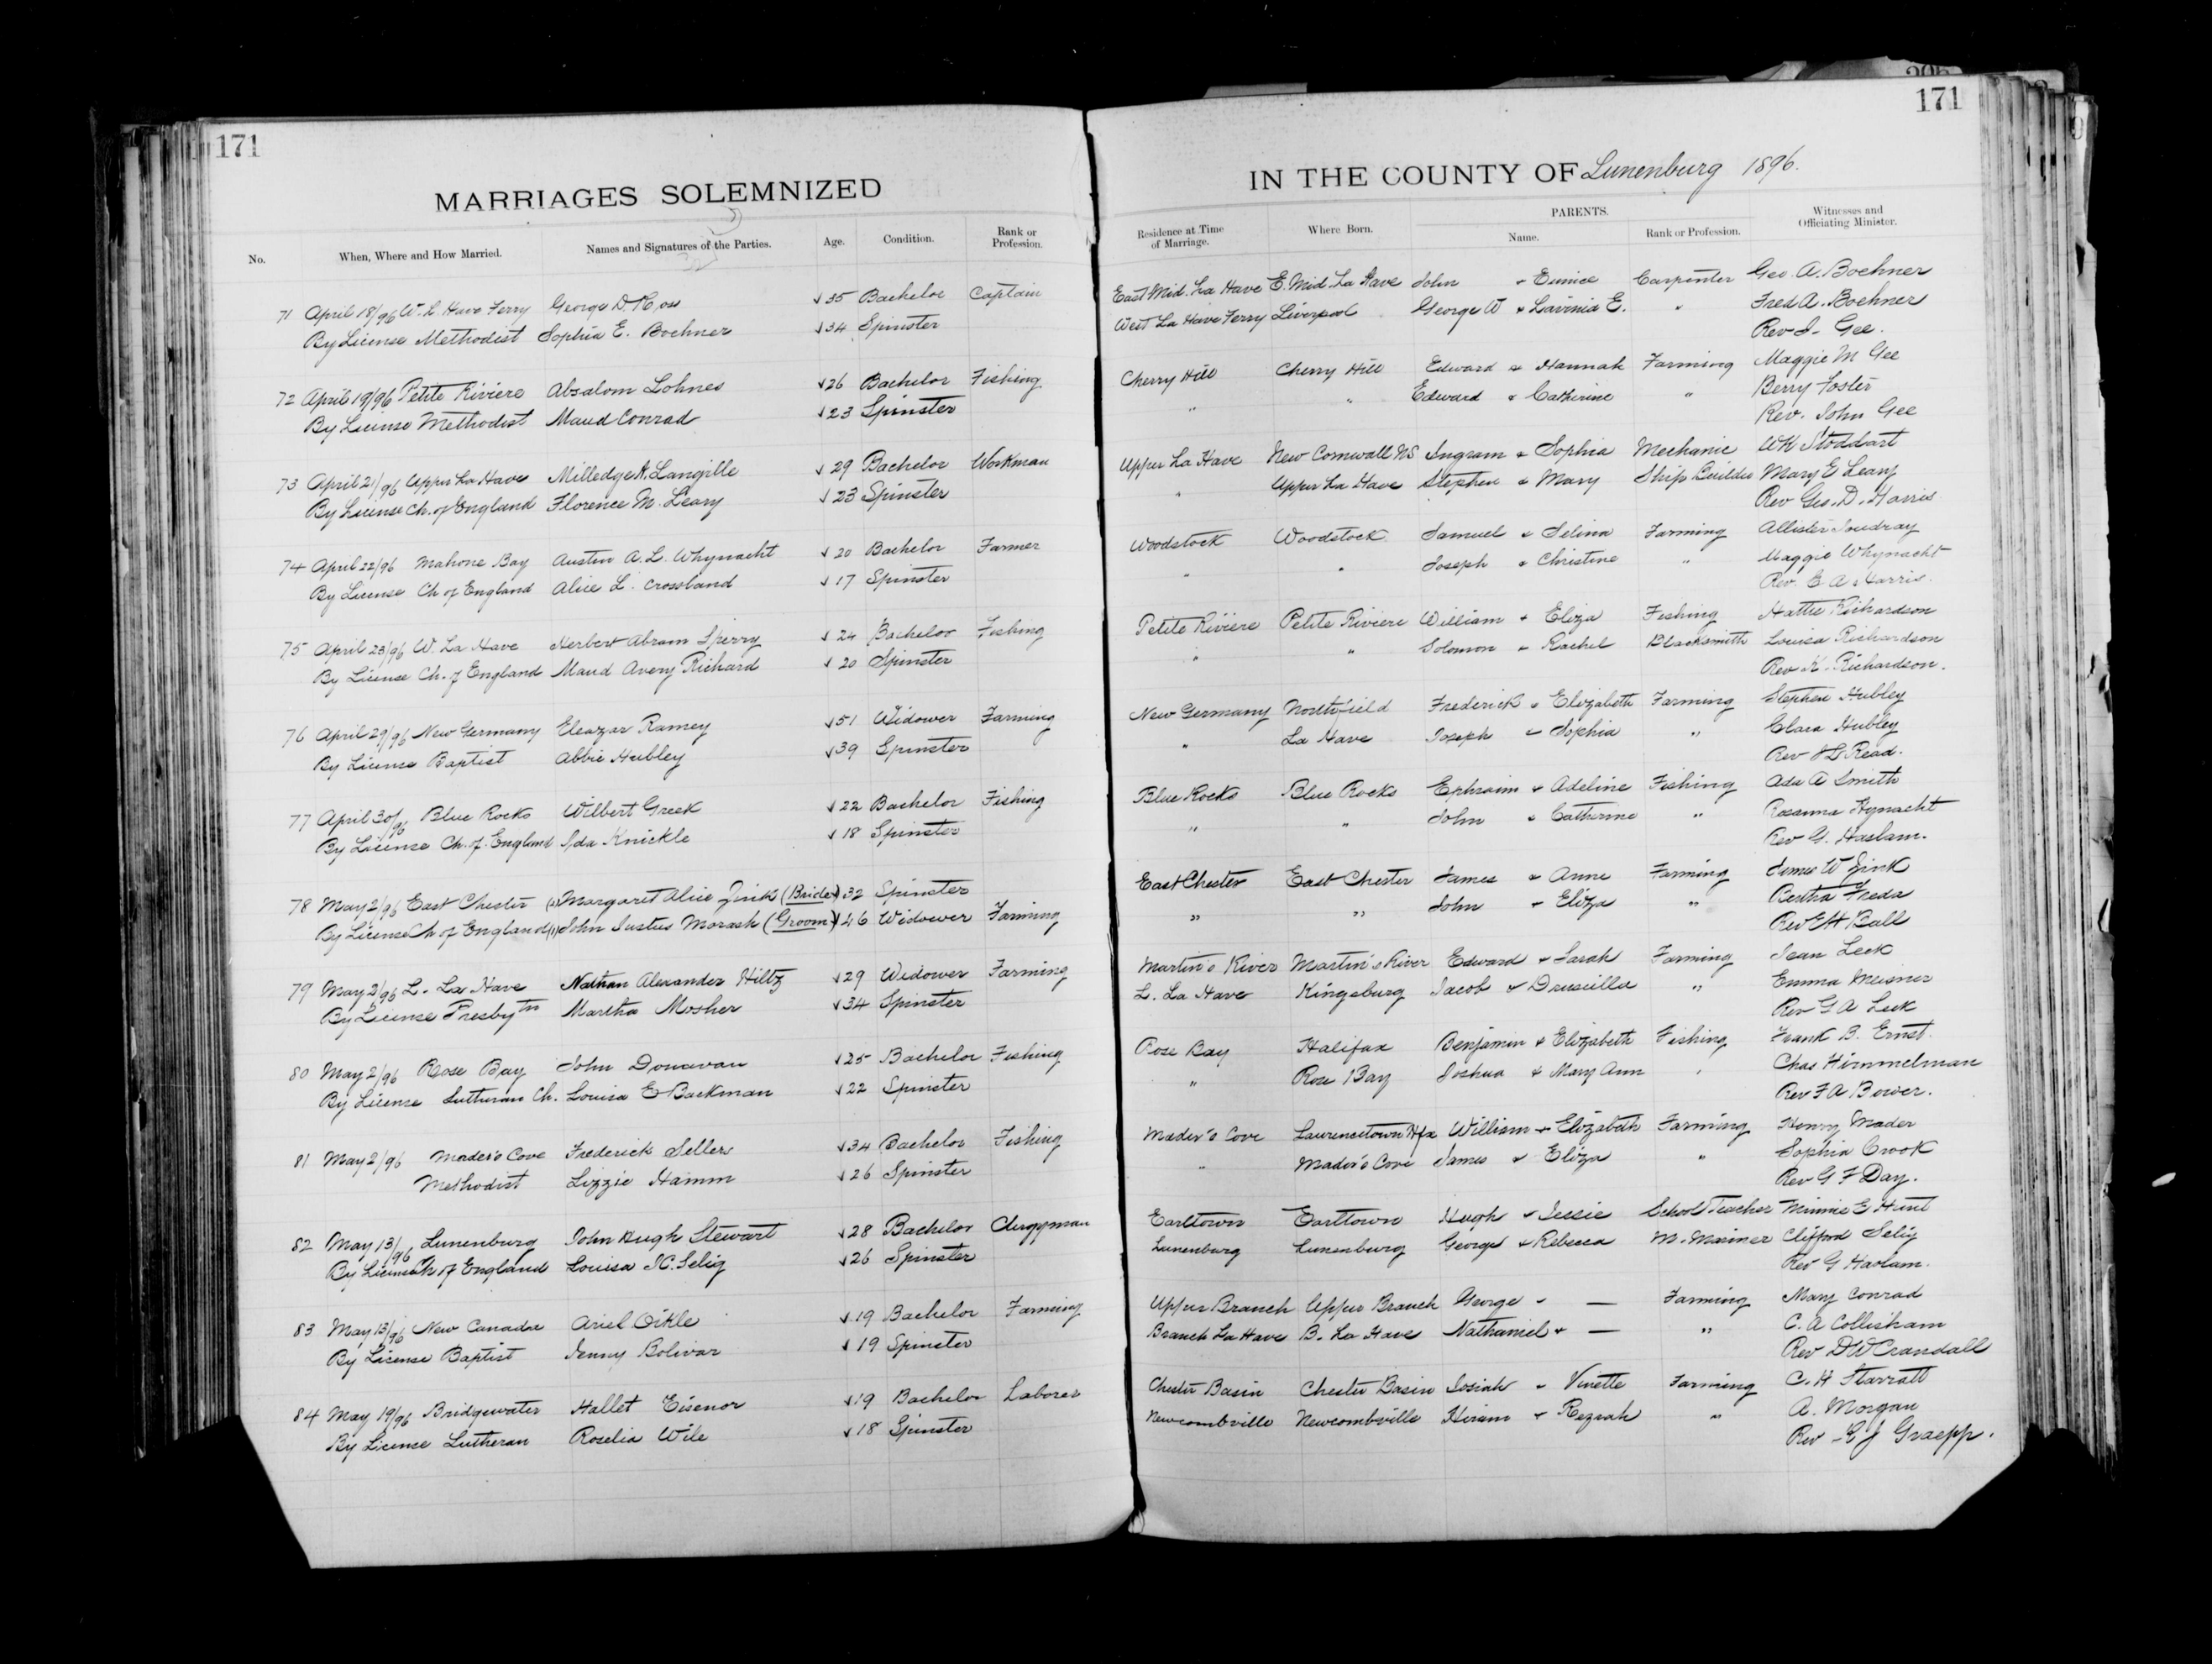 171
MARRIAGES SOLEMNIZED
No. When, Where and How Married. Names and Signatures of the Parties. Age. Condition. Rank or Profession.
71 April 18/96 W. L. Have Ferry George D. Ross 35 Bachelor Captain
By License Methodist Sophia E. Boehner 34 Spinster
72 April 19/96 Petite Riviere Absalom Lohnes 26 Bachelor Fishing
By License Methodist Maud Conrad 23 Spinster
73 April 21/96 Upper La Have Milledge A. Langille 29 Bachelor Workman
By License Ch. of England Florence M. Leary 23 Spinster
74 April 22/96 Mahone Bay Austin A. L. Whynacht 20 Bachelor Farmer
By License Ch of England Alice L. Crossland 17 Spinster
75 April 23/96 W. La Have Herbert Abram Sperry 24 Bachelor Fishing
By License Ch. of England Maud Avery Richard 20 Spinster
76 April 29/96 New Germany Eleazar Ramey 51 Widower Farming
By License Baptist Abbie Hubley 39 Spinster
77 April 30/96 Blue Rocks Wilbert Greek 22 Bachelor Fishing
By License Ch. of England Ida Knickle 18 Spinster
78 May 2/96 East Chester (2) Margaret Alice Zink (Bride) 32 Spinster
By License Ch of England (1) John Justus Morash (Groom) 46 Widower Farming
79 May 2/96 L. La Have Nathan Alexander Hiltz 29 Widower Farming
By License Presbytn Martha Mosher 34 Spinster
80 May 2/96 Rose Bay John Donavan 25 Bachelor Fishing
By License Lutheran Ch. Louisa E Backman 22 Spinster
81 May 2/96 Mader's Cove Frederick Sellers 34 Bachelor Fishing
Methodist Lizzie Hamm 26 Spinster
82 May 13/96 Lunenburg John Hugh Stewart 28 Bachelor Clergyman
By License Ch of England Louisa K. Selig 26 Spinster
83 May 13/96 New Canada Ariel Oikle 19 Bachelor Farming
By License Baptist Jenny Bolivar 19 Spinster
84 May 19/96 Bridgewater Hallet Eisenor 19 Bachelor Laborer
By License Lutheran Roselia Wile 18 Spinster
171
IN THE COUNTY OF Lunenburg 1896.
Residence at Time of Marriage. Where Born. PARENTS. Name. Rank or Profession. Witnesses and Officiating Minister.
East Mid. La Have E. Mid. La Have John & Eunice Carpenter Geo. A. Boehner
West La Have Ferry Liverpool George W & Lavinia E. " Fred A. Boehner
Rev J. Gee.
Cherry Hill Cherry Hill Edward & Hannah Farming Maggie M Gee
" " Edward & Catherine " Berry Foster
Rev. John Gee
Upper La Have New Cornwall NS Ingram & Sophia Mechanic WH Stoddart
" Upper La Have Stephen & Mary Ship Builder Mary E Leary
Rev Geo. D. Harris
Woodstock Woodstock Samuel & Selina Farming Allister Joudray
" " Joseph & Christine " Maggie Whynacht
Rev. E A Harris.
Petite Riviere Petite Riviere William & Eliza Fishing Hattie Richardson
" " Solomon & Rachel Blacksmith Louisa Richardson
Rev K. Richardson.
New Germany Northfield Frederick & Elizabeth Farming Stephen Hubley
" La Have Joseph & Sophia " Clara Hubley
Rev J L Read.
Blue Rocks Blue Rocks Ephraim & Adeline Fishing Ada A Smith
" " John & Catherine " Rosanna Hynacht
Rev G. Haslam.
East Chester East Chester James & Anne Farming James W Zink
" " John & Eliza " Bertha Freda
Rev EH Ball
Martin's River Martin's River Edward & Sarah Farming Jean Leck
L. La Have Kingsburg Jacob & Druscilla " Emma Meisner
Rev G A Leck
Rose Bay Halifax Benjamin & Elizabeth Fishing Frank B. Ernst.
" Rose Bay Joshua & Mary Ann " Chas Himmelman
Rev F A Bower.
Mader's Cove Laurencetown Hfx William & Elizabeth Farming Henry Mader
" Mader's Cove James & Eliza " Sophia Crook
Rev G F Day.
Earltown Earltown Hugh & Jessie School Teacher Minnie E Hunt
Lunenburg Lunenburg George & Rebecca M. Mariner Clifford Selig
Rev G Haslam.
Upper Branch Upper Branch George & — Farming Mary Conrad
Branch La Have B. La Have Nathaniel & — " C. A Collisham
Rev DW Crandall
Chester Basin Chester Basin Josiah & Vinette Farming C. H Starratt
Newcombville Newcombville Hiram & Keziah " A. Morgan
Rev E J Graepp.